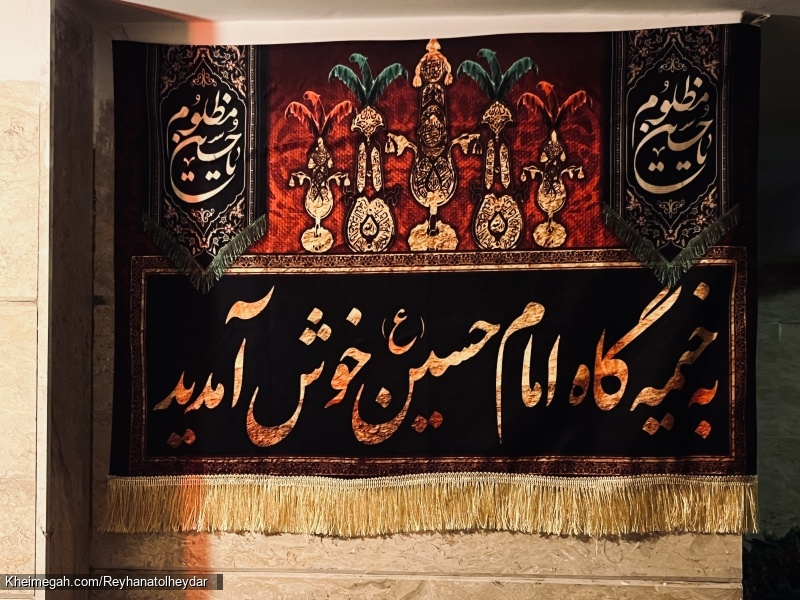 یا حسین مظلوم
یا حسین مظلوم
به خیمه گاه امام حسین (ع) خوش آمدید
Kheimegah.com/Reyhanatolheydar